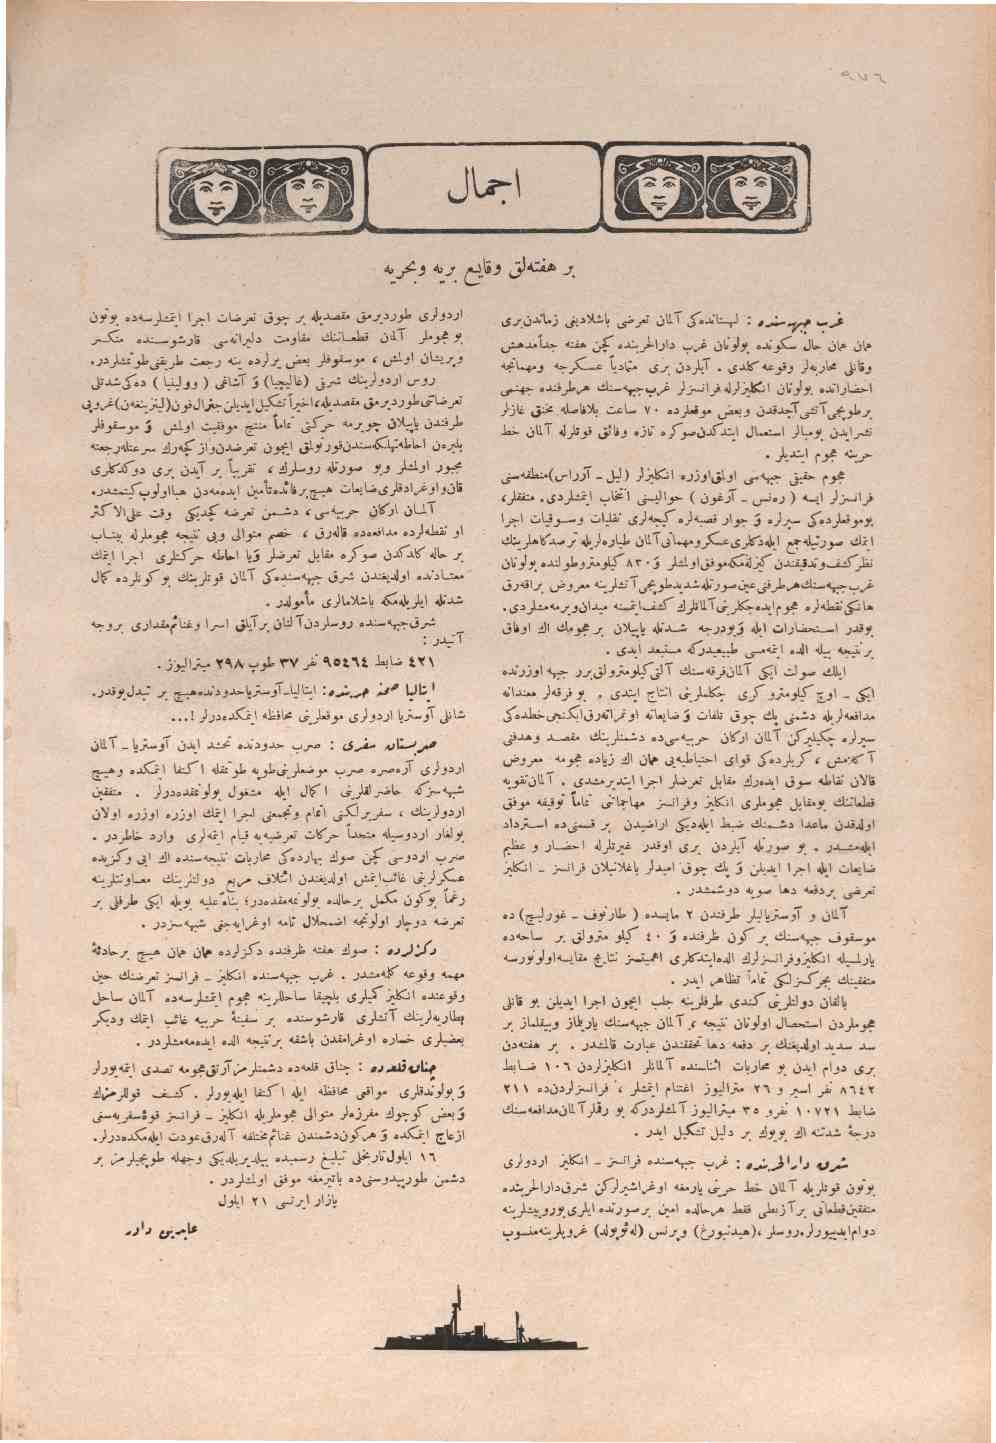 ٩٧٦
اجمال
بر هفته‌لق وقایـع بریه وبحریه
غرب جبهه‌سنده : لهستانده‌کی آلمان تعرضی باشلادیغی زماندن‌بری
همان همان حال سکونده بولونان غرب دارالحربنده کچن هفته جداً مدهش
وقانلی محاربه‌لر وقوعه کلدی . آیلردن بری متمادیاً عسکرجه ومهماتجه
احضارانده بولونان انکلیزلرله فرانسزلر غرب جبهه‌سنك هر طرفنده جهنمی
بر طوپجی آتشی آچدقدن وبعض موقعلرده ٧٠ ساعت بلافاصله مخنق غازلر
نشر ایدن بومبالر استعمال ایتدکدن صوکره تازه وفائق قوتلرله آلمان خط
حربنه هجوم ایتدیلر .
هجوم حقیقی جبهه‌سی اولمق اوزره انکلیزلر (لیل ـ آرراس) منطقه‌سنی
فرانسزلر ایسه ( ره‌نس ـ آرغون ) حوالیسنی انتخاب ایتمشلردی. متفقلر،
بو موقعلرده‌کی سیرلره و جوار قصبه‌لره کیجه‌لری نقلیات وسوقیات اجرا
ایتمك صورتیله جمع ایله‌دکلری عسکر ومهماتی آلمان طیاره‌لریله ترصدکاهلرینك
نظر کشف وتدقیقندن کیزله‌مکه موفق اولمشلر و ٨٣٠ کیلومترو طولنده بولونان
غرب جبهه‌سنك هر طرفنی عین صورتله شدید طوپجی آتشلرینه معروض براقه‌رق
هانکی نقطه‌لره هجوم ایده‌جکلرینی آلمانلرك کشف ایتمسنه میدان ویرمه‌مشلردی.
بوقدر استحضارات ایله و بودرجه شدتله یاپیلان بر هجومك اك اوفاق
بر نتیجه بیله الده ایتمه‌مسی طبیعیدرکه مستبعد ایدی .
ایلك صولت ایکی آلمان فرقه‌سنك آلتی کیلومترولق برر جبهه اوزرنده
ایکی ـ اوچ کیلومترو کری چکلملرینی انتاج ایتدی . بو فرقه‌لر معندانه
مدافعه‌لریله دشمنی پك چوق تلفات و ضایعاته اوغراته‌رق ایکنجی خطده‌کی
سیرلره چکیلیرکن آلمان ارکان حربیه‌سی‌ده دشمنلرینك مقصد وهدفنی
آکلامش ، کریلرده‌کی قوای احتیاطیه‌یی همان اك زیاده هجومه معروض
قالان نقاطه سوق ایده‌رك مقابل تعرضلر اجرا ایتدیرمشدی . آلمان تقویه
قطعاتنك بو مقابل هجوملری انکلیز وفرانسز مهاجماتی تماماً توقیفه موفق
اولدقدن ماعدا دشمنك ضبط ایله‌دیکی اراضیدن بر قسمنی‌ده استرداد
ایله‌مشدر . بو صورتله آیلردن بری اوقدر غیرتلرله احضار و عظیم
ضایعات ایله اجرا ایدیلن و پك چوق امیدلر باغلانیلان فرانسز ـ انکلیز
تعرضی بردفعه دها صویه دوشمشدر .
آلمان و آوستریالیلر طرفندن ٢ مایسده ( طارنوف ـ غورلیچ) ده
موسقوف جبهه‌سنك بر کون ظرفنده و ٤٠ کیلو مترولق بر ساحه‌ده
یارلمسیله انکلیز وفرانسزلرك الده ایتدکلری اهمیتسز نتایج مقایسه اولونورسه
متفقینك عجزکزلکی تماماً تظاهر ایدر .
بالقان دولتلرینی کندی طرفلرینه جلب ایچون اجرا ایدیلن بو قانلی
هجوملردن استحصال اولونان نتیجه ، آلمان جبهه‌سنك یاریلماز وییقلماز بر
سد سدید اولدیغنك بر دفعه دها تحققندن عبارت قالمشدر . بر هفته‌دن
بری دوام ایدن بو محاربات اثناسنده آلمانلر انکلیزلردن ١٠٦ ضابط
٨٦٤٢ نفر اسیر و ٢٦ مترالیوز اغتنام ایتمشلر ، فرانسزلردن‌ده ٢١١
ضابط ١٠٧٢١ نفر و ٣٥ میترالیوز آلمشلردرکه بو رقملر آلمان مدافعه‌سنك
درجهٔ شدتنه اك بویوك بر دلیل تشکیل ایدر .
شرق دارالحربنده : غرب جبهه‌سنده فرانسز ـ انکلیز اردولری
بوتون قوتلریله آلمان خط حربنی یارمغه اوغراشیرلرکن شرق دارالحربنده
متفقین قطعاتی بر آز بطی فقط هرحالده امین بر صورتده ایلری یورویشلرینه
دوام ایدییورلر. روسلر ، (هیندنبورغ) و پرنس (له‌ئوپولد) غروپلرینه منسوب
اردولری طوردیرمق مقصدیله بر چوق تعرضات اجرا ایتمشلرسه‌ده بوتون
بو هجوملر آلمان قطعاتنك مقاومت دلیرانه‌سی قارشوسنده منکسر
وپریشان اولمش ، موسقوفلر بعض یرلرده ینه رجعت طریقنی طوتمشلردر.
روس اردولرینك شرقی (غالیچیا) و آشاغی ( وولینیا ) ده‌کی شدتلی
تعرضاتنی طوردیرمق مقصدیله، اخیراً تشکیل ایدیلن جنرال فون (لیتزینغه‌ن) غروپی
طرفندن یاپیلان چویرمه حرکتی تماماً منتج موفقیت اولمش و موسقوفلر
یکیدن احاطه تهلکه‌سندن قورتولمق ایچون تعرضدن واز کچه‌رك سرعتله رجعته
مجبور اولمشلر وبو صورتله روسلرك ، تقریباً بر آیدن بری دوکدکلری
قان واوغرادقلری ضایعات هیچ بر فائده تأمین ایده‌مه‌دن هبا اولوب کیتمشدر.
آلمان ارکان حربیه‌سی ، دشمن تعرضه کچدیکی وقت علی‌الاکثر
او نقطه‌لرده مدافعه‌ده قاله‌رق ، خصم متوالی وبی نتیجه هجوملرله بیتاب
بر حاله کلدکدن صوکره مقابل تعرضلر ویا احاطه حرکتلری اجرا ایتمك
معتادنده اولدیغندن شرق جبهه‌سنده‌کی آلمان قوتلرینك بو کونلرده کمال
شدتله ایلریله‌مکه باشلامالری مأمولدر .
شرق جبهه‌سنده روسلردن آلنان بر آیلق اسرا وغنائم مقداری بروجه
آتیدر :
٤٢١ ضابط ٩٥٤٦٤ نفر ٣٧ طوپ ٢٩٨ میترالیوز .
ایتالیا صحنهٔ حربنده : ایتالیا ـ آوستریا حدودنده هیچ بر تبدل یوقدر.
شانلی آوستریا اردولری موقعلرینی محافظه ایتمکده‌درلر !...
صربستان سفری : صرب حدودنده تحشد ایدن آوستریا ـ آلمان
اردولری آره‌صره صرب موضعلرینی طوپه طوتمقله اکتفا ایتمکده وهیچ
شبهه‌سزکه حاضرلقلرینی اکمال ایله مشغول بولونمقده‌درلر . متفقین
اردولرینك ، سفربرلکنی اتمام وتجمعنی اجرا ایتمك اوزره اوزره اولان
بولغار اردوسیله متحداً حرکات تعرضیه‌یه قیام ایتمه‌لری وارد خاطردر .
صرب اردوسی کچن صوك بهارده‌کی محاربات نتیجه‌سنده اك ایی وکزیده
عسکرلرینی غائب ایتمش اولدیغندن ائتلاف مربع دولتلرینك معاونتلرینه
رغماً بوکون مکمل بر حالده بولونه‌مقده‌در؛ بناءً علیه بویله ایکی طرفلی بر
تعرضه دوچار اولونجه اضمحلال تامه اوغرایه‌جغی شبهه‌سزدر .
دکزلرده : صوك هفته ظرفنده دکزلرده همان همان هیچ بر حادثهٔ
مهمه وقوعه کلمه‌مشدر . غرب جبهه‌سنده انکلیز ـ فرانسز تعرضنك حین
وقوعنده انکلیز کمیلری بلچیقا ساحللرینه هجوم ایتمشلرسه‌ده آلمان ساحل
بطاریه‌لرینك آتشلری قارشوسنده بر سفینهٔ حربیه غائب ایتمك ودیکر
بعضیلری خساره اوغرامقدن باشقه بر نتیجه الده ایده‌مه‌مشلردر .
چناق قلعه‌ده : چناق قلعه‌ده دشمنلرمز آرتق هجومه تصدی ایتمه‌یورلر
و بولوندقلری مواقعی محافظه ایله اکتفا ایله‌یورلر . کشف قوللرمزك
و بعض کوچوك مفرزه‌لر متوالی هجوملریله انکلیز ـ فرانسز قوهٔ سفریه‌سنی
ازعاج ایتمکده و هرکون دشمندن غنائم مختلفه آله‌رق عودت ایله‌مکده‌درلر.
١٦ ایلول تاریخلی تبلیغ رسمیده بیلدیریلدیکی وجهله طوپجیلرمز بر
دشمن طورپیدوسنی‌ده باتیرمغه موفق اولمشلردر .
بازار ایرتسی ٢١ ایلول
عابدین داور